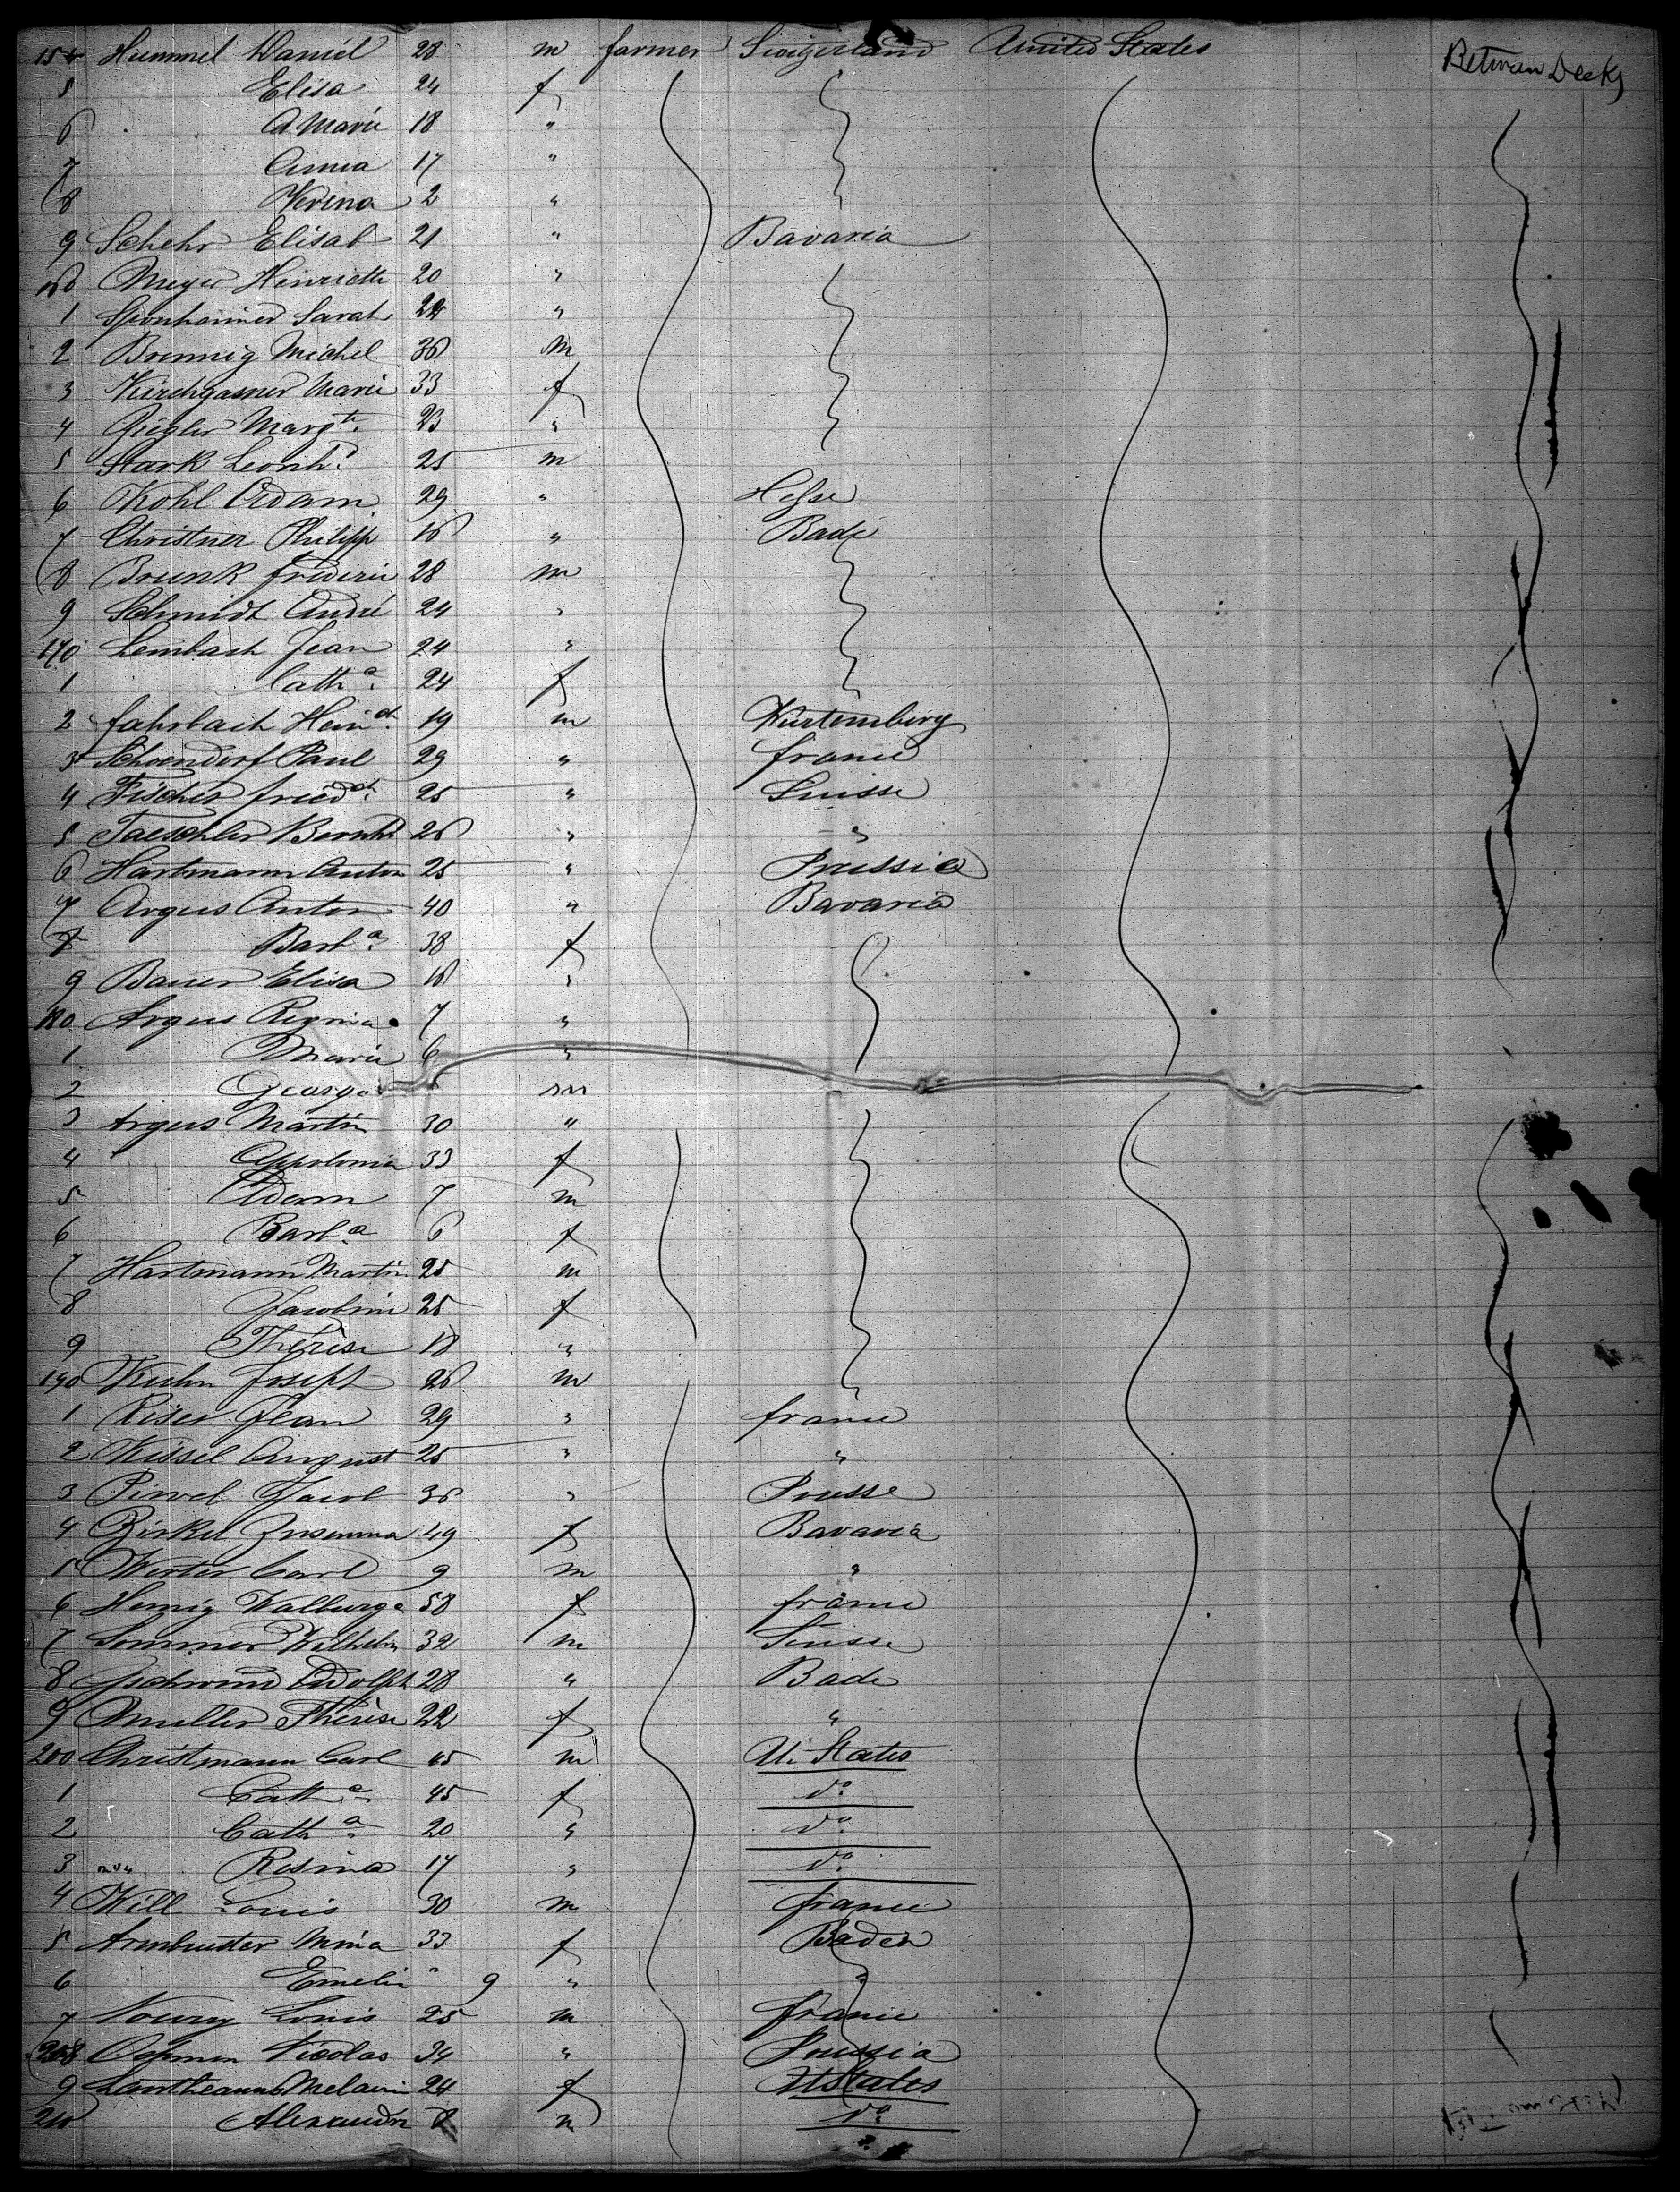 154 Hummel Daniel 28 m farmer Swizerland United States Between Decks
5 Elisa 24 f
6 A Marie 18 "
7 Anna 17 "
8 Verina 2 "
9 Schehr Elisab 21 " Bavaria
160 Meyer Henriette 20 "
1 Sponheimer Sarah 22 "
2 Brennig Michel 36 m
3 Kirchgasner Marie 33 f
4 Ziegler Margte. 23 "
5 Stark Leonhd. 25 m
6 Kohl Adam 29 " Hesse
7 Christner Philipp 16 " Bade
8 Brunk frederic 28 m
9 Schmidt André 24 "
170 Lembach Jean 24 "
1 Catha. 24 f
2 fahrbach Heinch. 19 m Würtemberg
3 Schoendorf Paul 29 " france
4 Fischer friedch. 25 " Suisse
5 Taeschler Bernhd 26 " "
6 Hartmann Anton 25 " Prussia
7 Argus Anton 40 " Bavaria
8 Barba. 38 f
9 Bauer Elisa 16 "
180 Argus Regina 7 "
1 Marie 6 "
2 George m
3 Argus Martin 30 "
4 Appolonia 33 f
5 Adam 7 m
6 Barba. 6 f
7 Hartmann Martin 25 m
8 Jacobine 25 f
9 Thérèse 18 "
190 Kuhn Joseph 26 m
1 Riser Jean 29 " france
2 Kissel August 25 " "
3 Jacob 36 " Prusse
4 Zirkel Susanna 49 f Bavaria
5 Werter Carl 9 m "
6 Hemig Walburga 58 f france
7 Sommer Wilhelm 32 m Suisse
8 Gschwind Adolph 28 " Bade
9 Muller Thérèse 22 f "
200 Christmann Carl 45 m U. States
1 Catha. 45 f do.
2 Catha. 20 " do.
3 Rosina 17 " do.
4 Will Louis 30 m france
5 Armbruster Mina 33 f Baden
6 Emelie " 9 " "
7 Noury Louis 25 m france
208 Nicolas 34 " Prussia
9 Melanie 24 f U States
210 Alexandre m do.